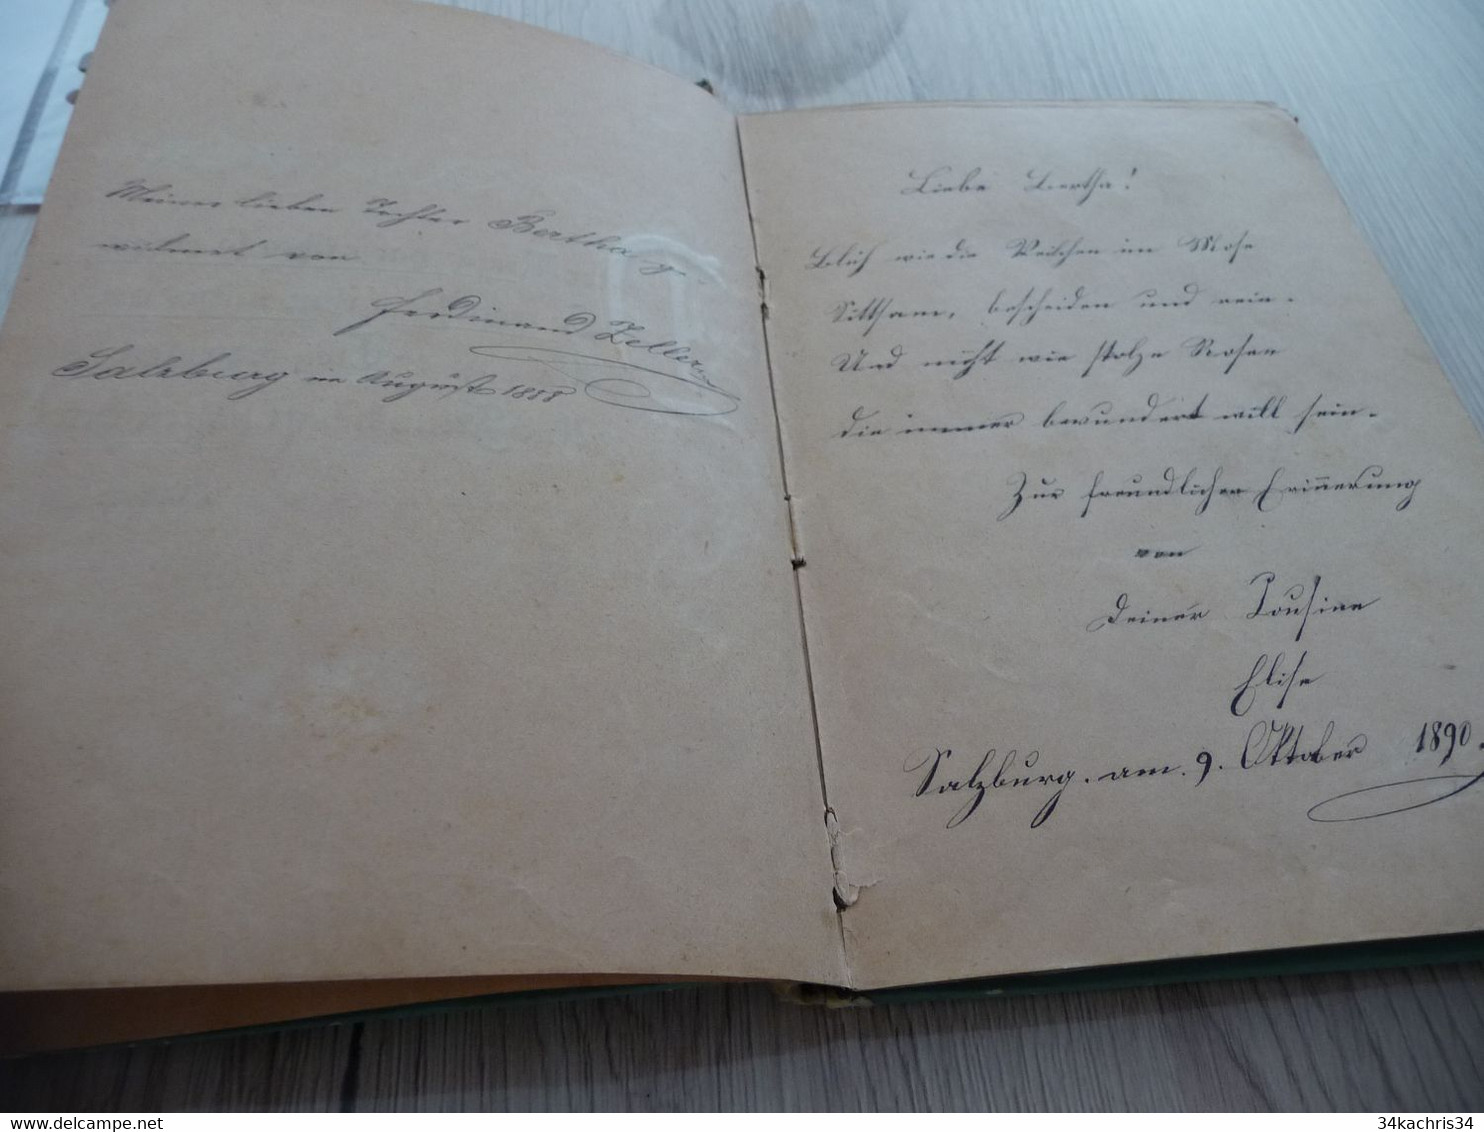 Meiner lieben Tochter Bertha
widmet von
Ferdinand Zeller
Salzburg im August 1888
Liebe Bertha!
Blüh wie die Veilchen im Mose
Sittsam, bescheiden und rein.
Und nicht wie stolze Rosen
die immer bewundert will sein.
Zur freundlichen Erinnerung
von
Deiner Cousine
Elise
Salzburg. am. 9. Oktober 1890.
delcampe.net
34kachris34